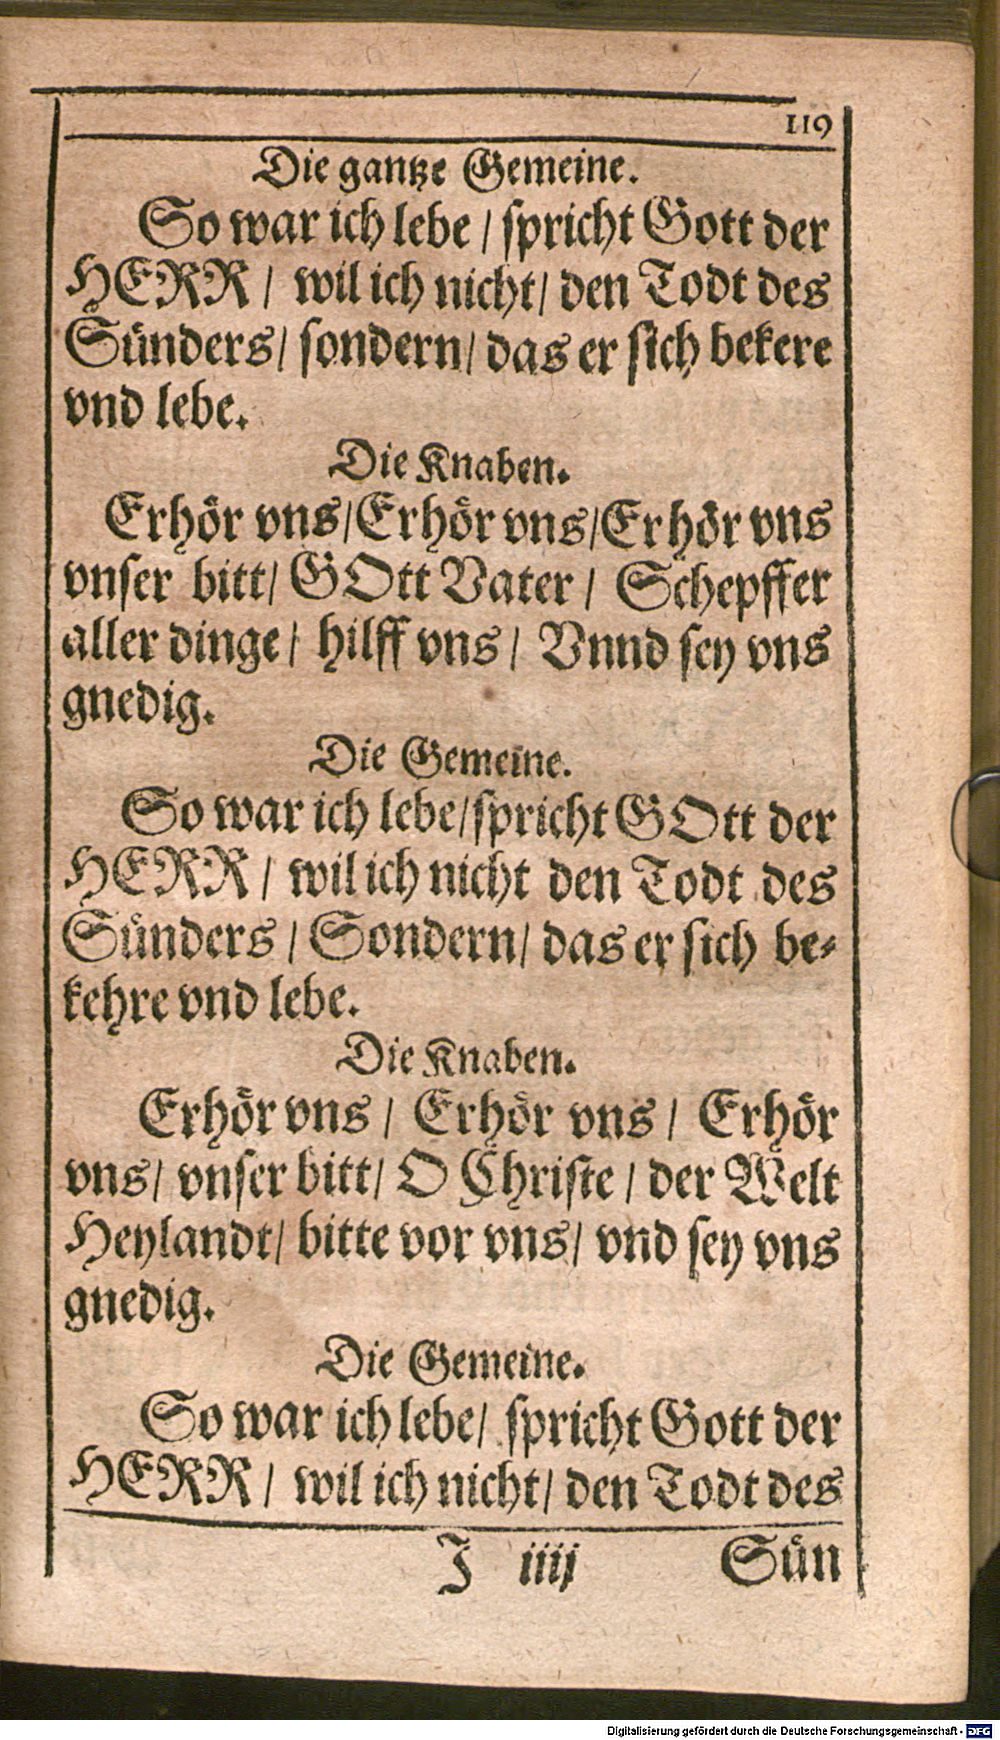 119
Die gantze Gemeine.
So war ich lebe / spricht Gott der
HERR / wil ich nicht / den Todt des
Sünders / sondern / das er sich bekere
vnd lebe.
Die Knaben.
Erhör vns / Erhör vns / Erhör vns
vnser bitt / GOtt Vater / Schepffer
aller dinge / hilff vns / Vnnd sey vns
gnedig.
Die Gemeine.
So war ich lebe / spricht GOtt der
HERR / wil ich nicht den Todt des
Sünders / Sondern / das er sich be-
kehre vnd lebe.
Die Knaben.
Erhör vns / Erhör vns / Erhör
vns / vnser bitt / O Christe / der Welt
Heylandt / bitte vor vns / vnd sey vns
gnedig.
Die Gemeine.
So war ich lebe / spricht Gott der
HERR / wil ich nicht / den Todt des
J iiij Sün
Digitalisierung gefördert durch die Deutsche Forschungsgemeinschaft - DFG